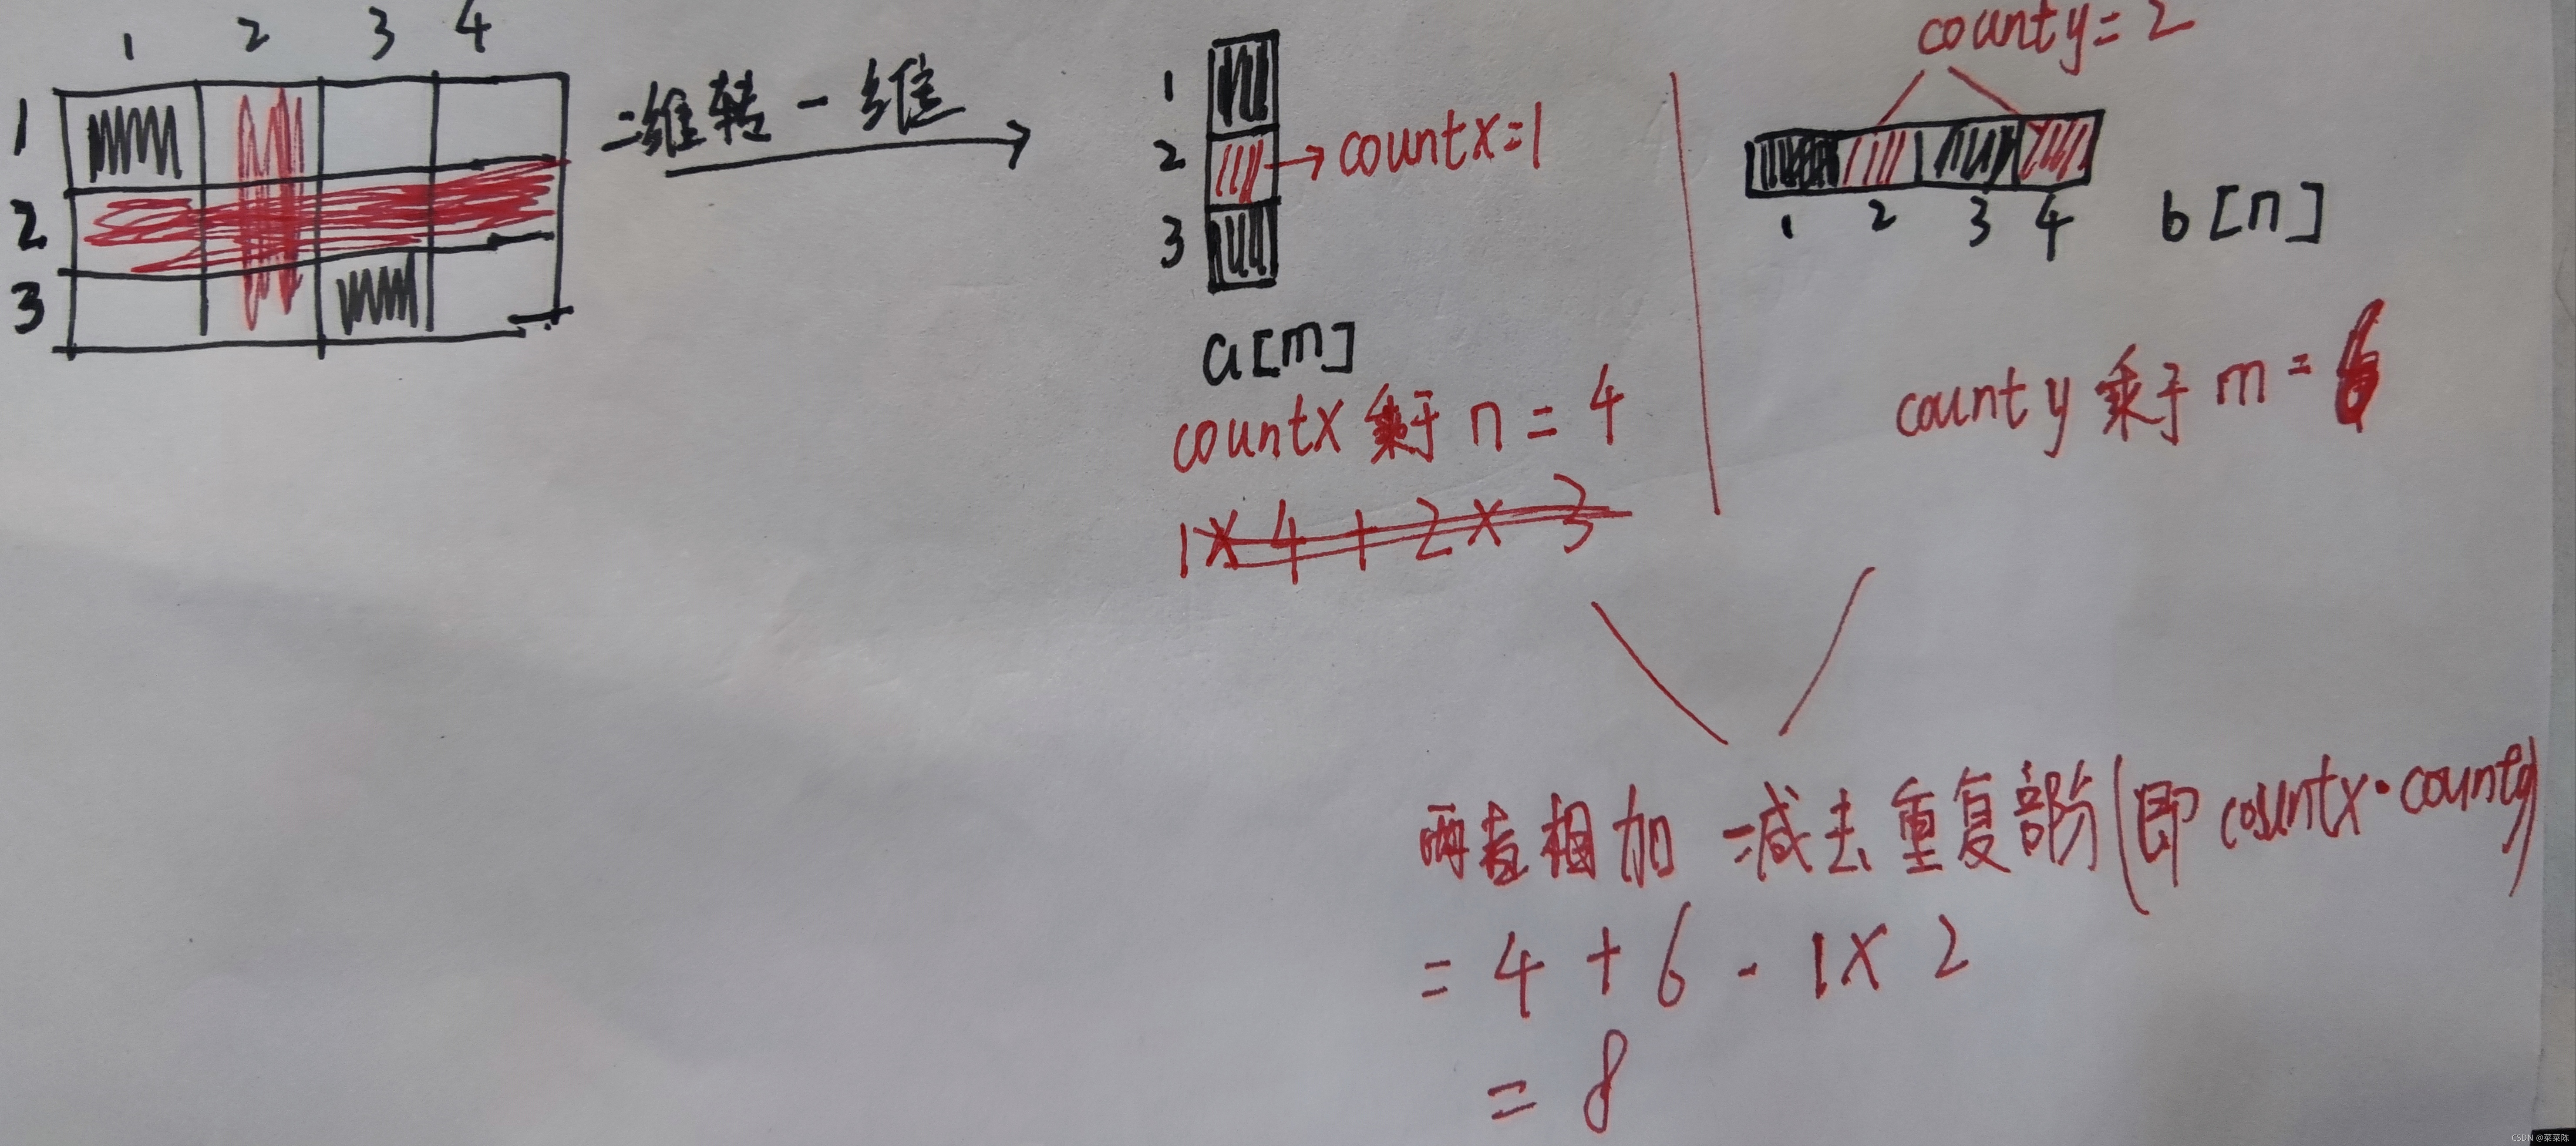 1 2 3 4
1
2
3
二维转一维
1
2
3
countx=1
a[m]
countx 乘于 n = 4
1×4+2×3
county=2
1 2 3 4
b[n]
county 乘于 m = 6
两者相加 - 减去重复部分(即 countx·county)
= 4 + 6 - 1×2
= 8
CSDN @菜菜陈